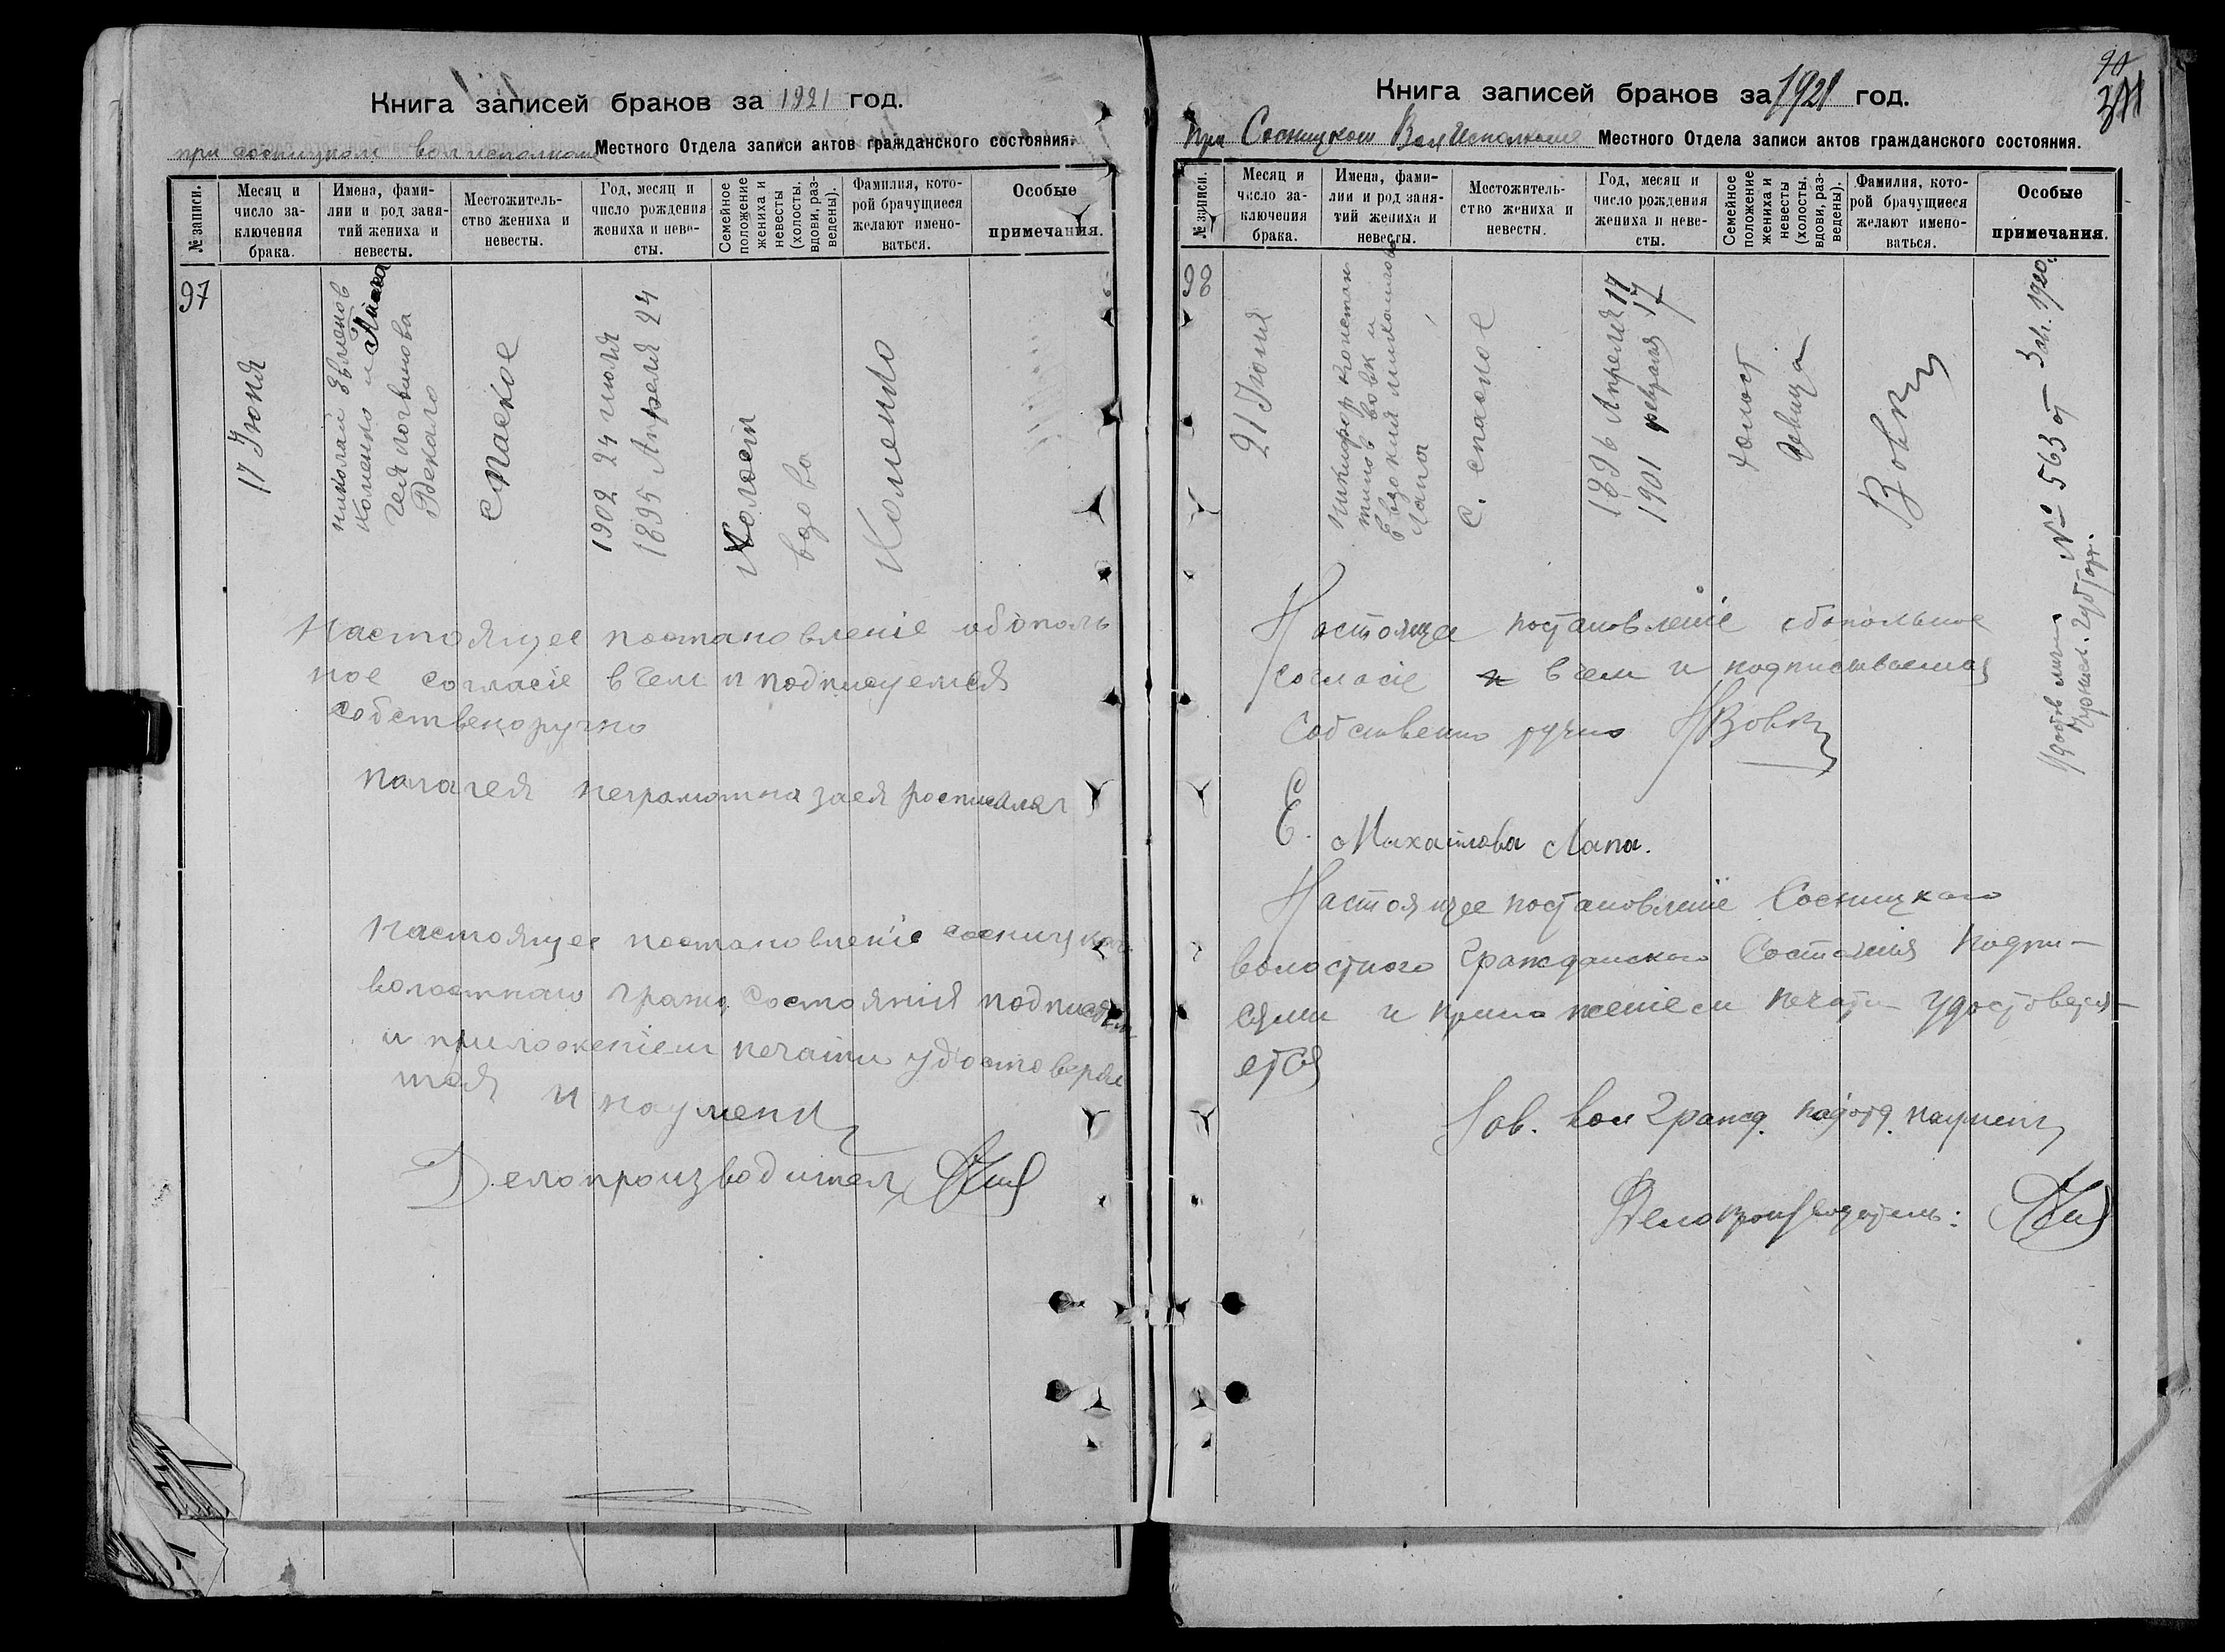 Книга записей браков за 1921 год.
при сосницком волисполкоме Местного Отдела записи актов гражданского состояния.
№ записи.
Месяц и число заключения брака.
Имена, фамилии и род занятий жениха и невесты.
Местожительство жениха и невесты.
Год, месяц и число рождения жениха и невесты.
Семейное положение жениха и невесты (холосты, вдовы, разведены).
Фамилия, которой брачущиеся желают именоваться.
Особые примечания.
97
17 Июня
николай
Коленко и
спаское
1902 24 июля
1895 Апреля 24
Холост
вдова
Коленко
Настоящее постановленіе обополь
ное согласіе в чем и подписуемся
собственоручно
палагея неграмотна зася росписалас
Настоящее постановленіе сосницкаго
волостнаго гражд. состоянія подписям
и приложеніем печати удостоверяе
тся
Делопроизводитель
90
Книга записей браков за 1921 год.
при Сосницком ВолИсполкоме Местного Отдела записи актов гражданского состояния.
№ записи.
Месяц и число заключения брака.
Имена, фамилии и род занятий жениха и невесты.
Местожительство жениха и невесты.
Год, месяц и число рождения жениха и невесты.
Семейное положение жениха и невесты (холосты, вдовы, разведены).
Фамилия, которой брачущиеся желают именоваться.
Особые примечания.
98
21 Июня
Никифор Констан
тинов Вовк и
Евдокия михайлова
Лапа
С. спаское
1896 Апреля 17
1901 февраля 17
холост
девица
Вовк
№ 563 от
Настояще постановленіе обопольное
согласіе в чем и подписываемся
собственно ручно НВовк
Е. Михайлова Лапа.
Настоящее постановленіе Сосницкаго
волостного Гражданского Состоянія подпи-
сями и приложеніем печати удостоверя-
ется
Зав. вол Гражд. подотд.
Делопроизводитель: